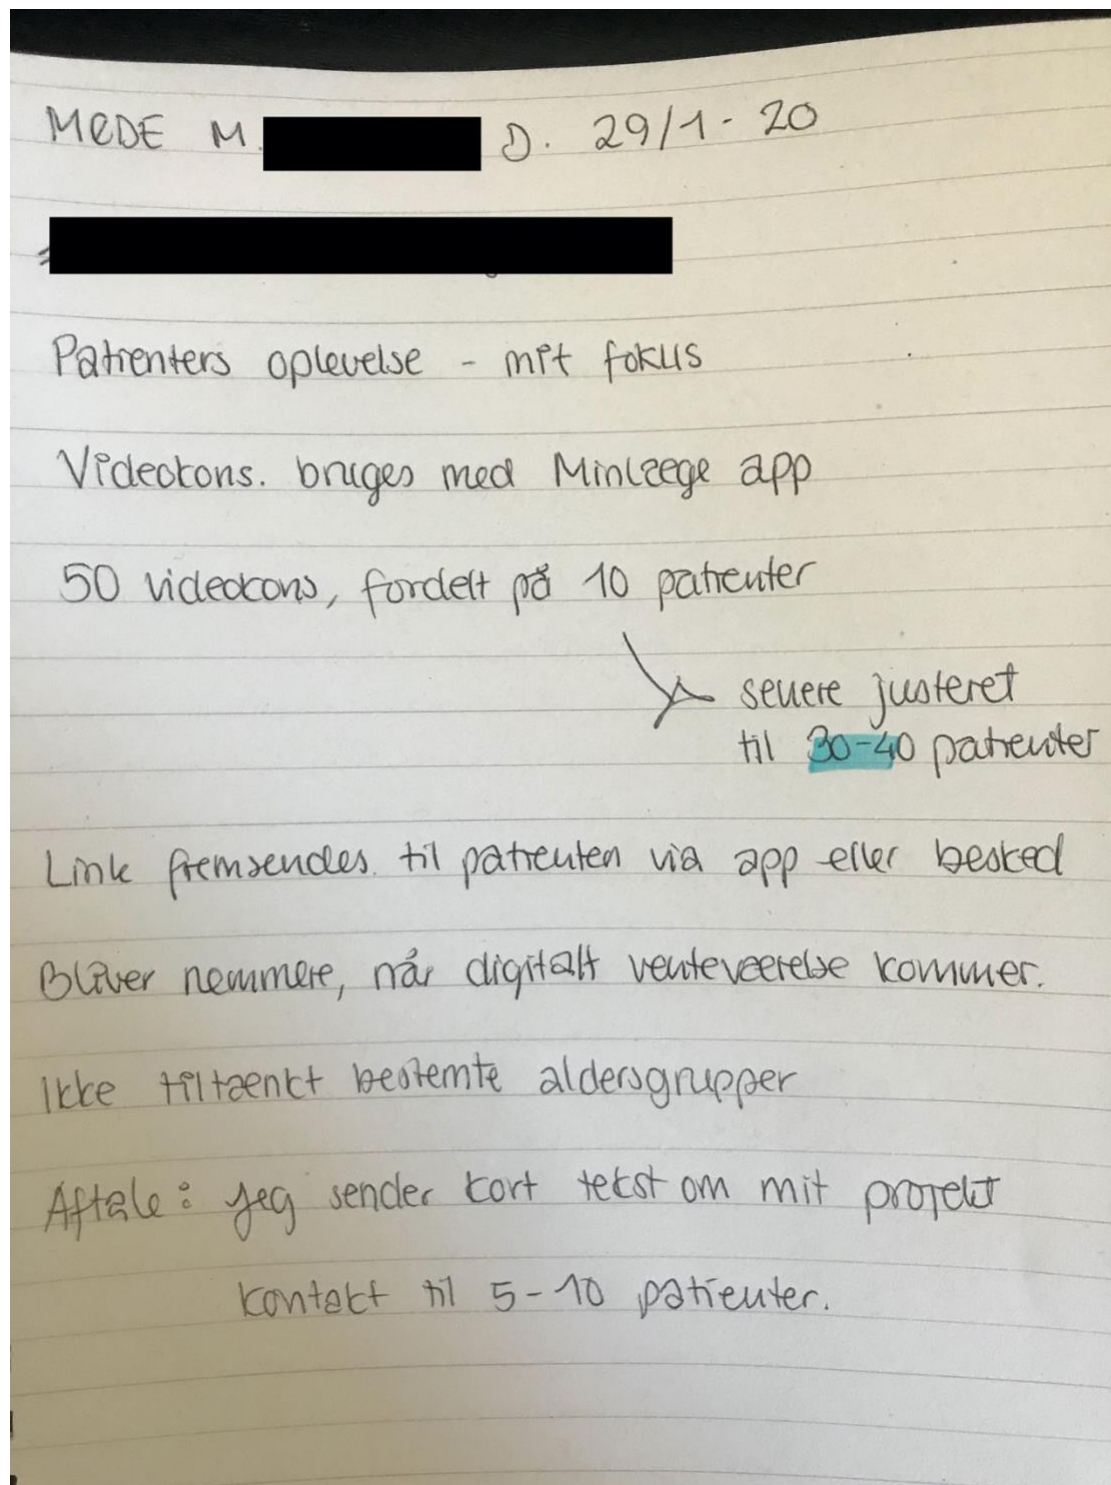 MØDE M. D. 29/1-20
Patienters oplevelse - mit fokus
Videokons. bruges med MinLæge app
50 videokons, fordelt på 10 patienter
senere justeret
til 30-40 patienter
Link fremsendes til patienten via app eller besked
Bliver nemmere, når digitalt venteværelse kommer.
Ikke tiltænkt bestemte aldersgrupper
Aftale: Jeg sender kort tekst om mit projekt
kontakt til 5-10 patienter.